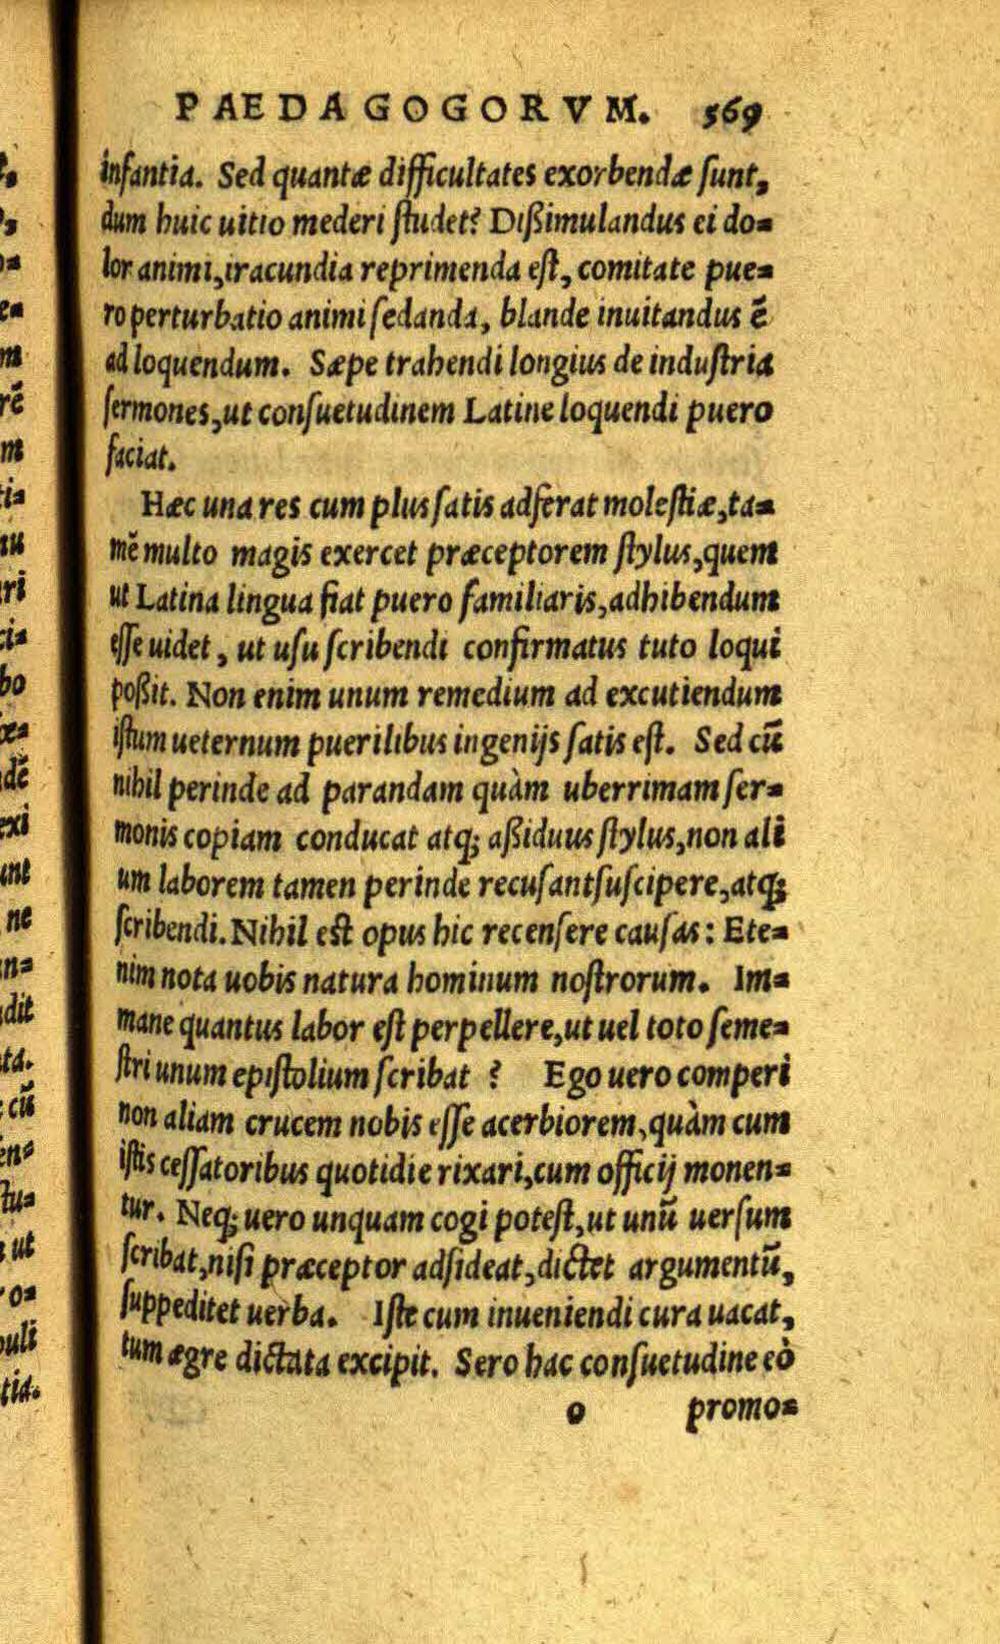 PAEDAGOGORVM. 569
infantia. Sed quantæ difficultates exorbendæ ſunt,
dum huic uitio mederi ſtudet? Dißimulandus ei do=
lor animi, iracundia reprimenda eſt, comitate pue=
ro perturbatio animi ſedanda, blande inuitandus ē
ad loquendum. Sæpe trahendi longius de induſtria
ſermones, ut conſuetudinem Latine loquendi puero
faciat.
Hæc una res cum plus ſatis adferat moleſtiæ, ta=
mē multo magis exercet præceptorem ſtylus, quem
ut Latina lingua fiat puero familiaris, adhibendum
eſſe uidet, ut uſu ſcribendi confirmatus tuto loqui
poßit. Non enim unum remedium ad excutiendum
iſtum ueternum puerilibus ingenijs ſatis eſt. Sed cū
nihil perinde ad parandam quàm uberrimam ſer=
monis copiam conducat atq; aßiduus ſtylus, non ali
um laborem tamen perinde recuſant ſuſcipere, atq;
ſcribendi. Nihil eſt opus hic recenſere cauſas: Ete=
nim nota uobis natura hominum noſtrorum. Im=
mane quantus labor eſt perpellere, ut uel toto ſeme=
ſtri unum epiſtolium ſcribat? Ego uero comperi
non aliam crucem nobis eſſe acerbiorem, quàm cum
iſtis ceſſatoribus quotidie rixari, cum officij monen=
tur. Neq; uero unquam cogi poteſt, ut unū uerſum
ſcribat, niſi præceptor adſideat, dictet argumentū,
ſuppeditet uerba. Iſte cum inueniendi cura uacat,
tum ægre dictata excipit. Sero hac conſuetudine eò
o promo=